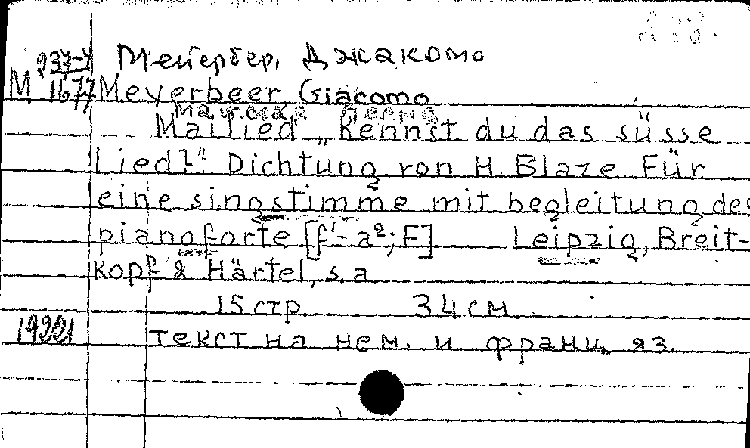 937-7 Мейербер, Джакомо
М 1677 Meyerbeer Giacomo
Майская песня
Mailied „Kennst du das süsse
Lied?" Dichtung von H. Blaze Für
eine singstimme mit begleitung des
pianoforte [f¹-a²; F] Leipzig, Breit-
kopf & Härtel, s.a
15 стр 34 см
текст на нем. и франц. яз.